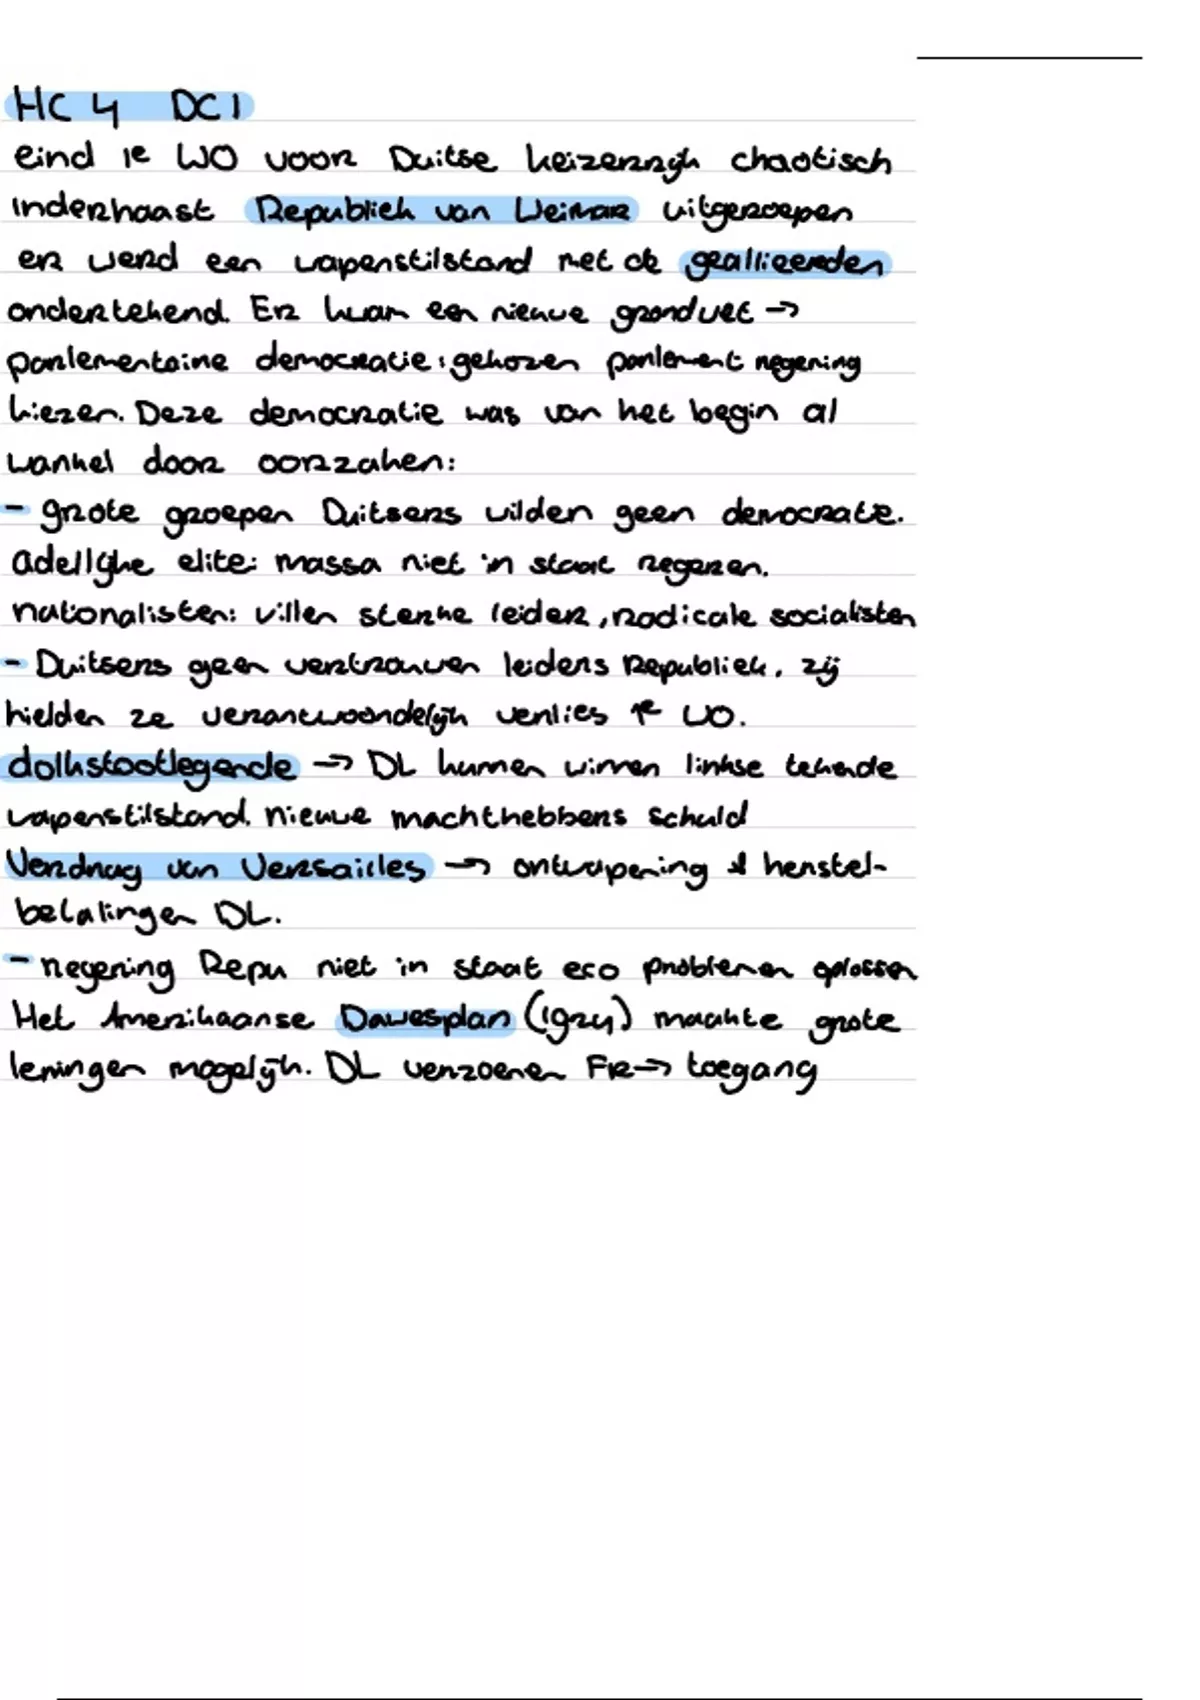 HC 4 DC1
eind 1e WO voor Duitse keizerrijk chaotisch
inderhaast Republiek van Weimar uitgeroepen
er werd een wapenstilstand met de geallieerden
ondertekend. Er kwam een nieuwe grondwet →
parlementaire democratie: gekozen parlement regering
kiezen. Deze democratie was van het begin al
wankel door oorzaken:
- grote groepen Duitsers wilden geen democratie.
adellijke elite: massa niet in staat regeren.
nationalisten: willen sterke leider, radicale socialisten
- Duitsers geen vertrouwen leiders Republiek, zij
hielden ze verantwoordelijk verlies 1e WO.
dolkstootlegende → DL kunnen winnen linkse tekende
wapenstilstand. nieuwe machthebbers schuld
Verdrag van Versailles → ontwapening & herstel-
betalingen DL.
- regering Repu niet in staat eco problemen oplossen
Het Amerikaanse Dawesplan (1924) maakte grote
leningen mogelijk. DL verzoenen FR → toegang